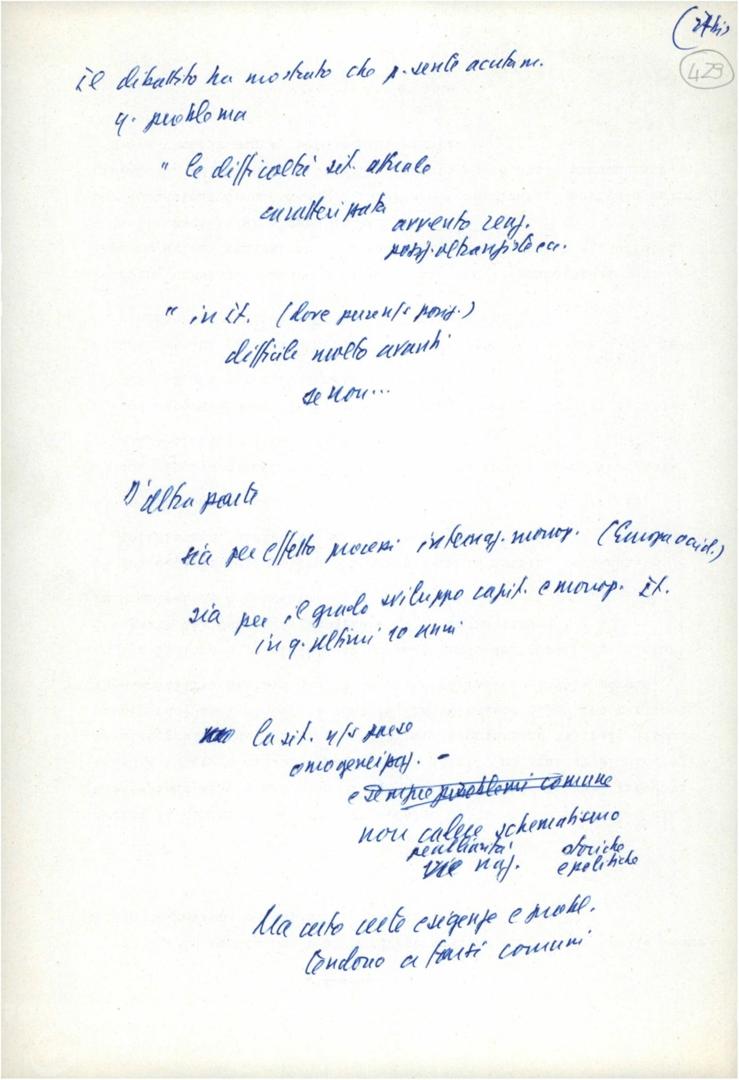 429
Il dibattito ha mostrato che p. sente acutam.
q. problema
" le difficoltà sit. attuale
caratterizzata
avvento reaz.
posiz. oltranzistica.
" in It. (dove posiz.)
difficile molto avanti
se non...
D'altra parte
sia per effetto processi internaz. monop. (Europa occid.)
sia per il grado sviluppo capit. e monop. It.
in q. ultimi 10 anni
la sit. n/s paese
omogeneizzaz. -
e sempre problemi comune
non calare schematismo
peculiarità storiche
vie naz. e politiche
Ma certo certe esigenze e probl.
tendono a farsi comuni